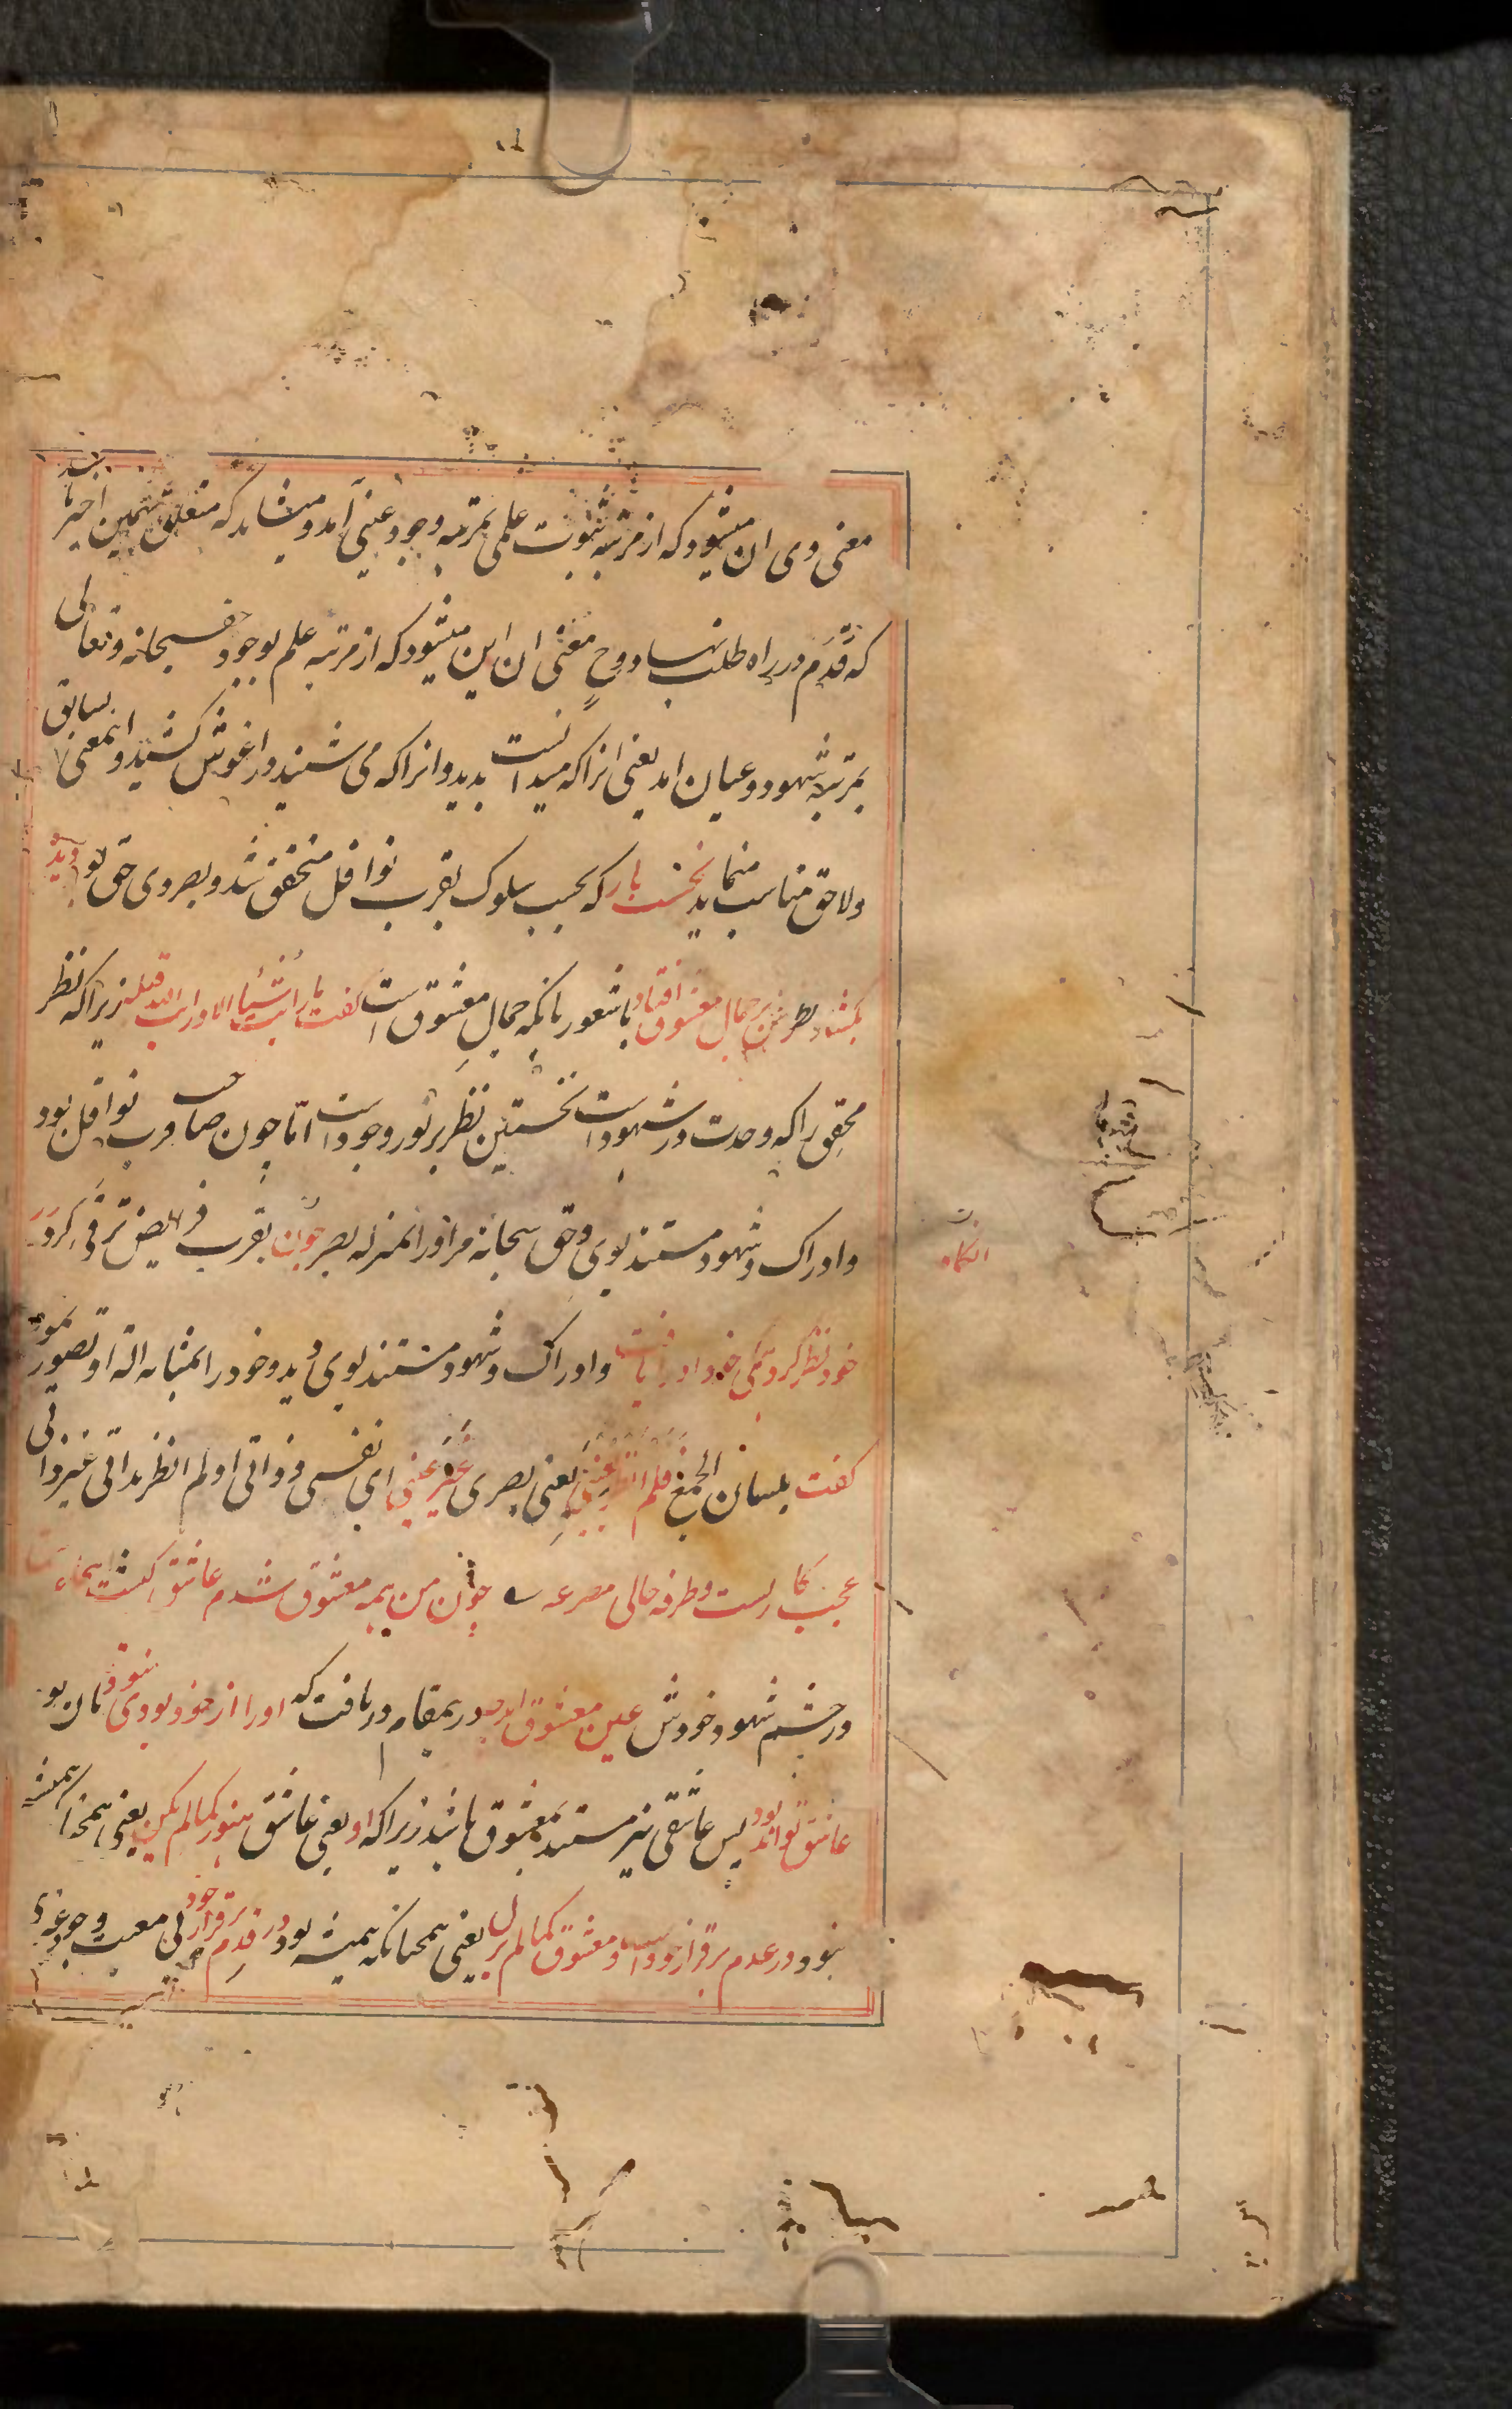 معنی وی ان میشود که از مرتبه ثبوت علمی بمرتبه وجود عینی آمد و میشاید که متعلق بهمین اخیر باشد
که قدم در راه طلب نهاد و ح معنی ان این میشود که از مرتبه علم بوجود حق سبحانه و تعالی
بمرتبه شهود و عیان امد یعنی انرا که میدانست بدید و انرا که می شنید در اغوش کشید و اینمعنی بسابق
و لاحق مناسب مینماید نخست بار که بحسب سلوک بقرب نوافل متحقق شد و بصر وی حق بود دیده
بکشاد نظرش بر جمال معشوق افتاد با شعور بانکه جمال معشوق است گفت ما رأیت شیئا الا و رایت الله قبله زیرا که نظر
محقق را که وحدت در شهود است نخستین نظر بر نور وجود است اما چون صاحب قرب نوافل بود
و ادراک و شهود مستند بوی و حق سبحانه مر او را بمنزله بصر چون بقرب فرایض ترقی کرد در
انکاه
خود نظر کرد همکی خود او را یافت و ادراک و شهود مستند بوی دید و خود را بمثابه الة او تصور نمود
گفت بلسان الجمع فلم انظر بعینی یعنی بصری غیر عینی ای نفسی و ذاتی او لم انظر بذاتی غیر ذاتی
عجب کاریست و طرفه حالی مصرعه چون من همه معشوق شدم عاشق کیست اینجا
در چشم شهود خودش عین معشوق امد در ینمقام دریافت که او را از خود بودی نبود تا ان بود
عاشق تواند بود پس عاشقی نیز مستند بمعشوق باشد زیرا که او یعنی عاشق هنوز کما لم یکن یعنی همچنانکه همیشه
نبود در عدم برقرار خود است و معشوق کما لم یزل یعنی همچنانکه همیشه بود در قدم برقرار خود بی معیت وجود غیری